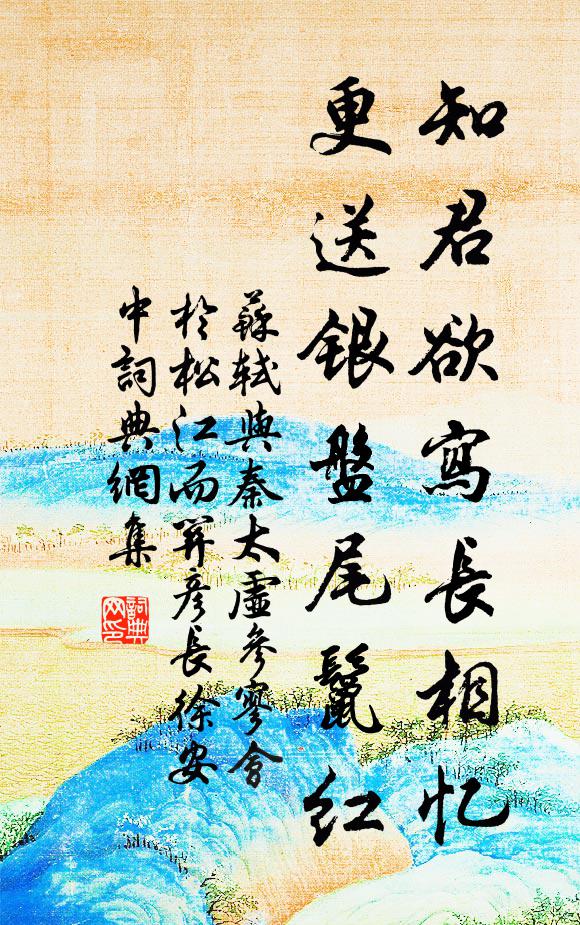 知君欲寫長相忆
更送銀盤尾鬣紅
蘇軾與秦太虛參寥會
於松江而关彥長徐安
中詞典網集
詞典
网印